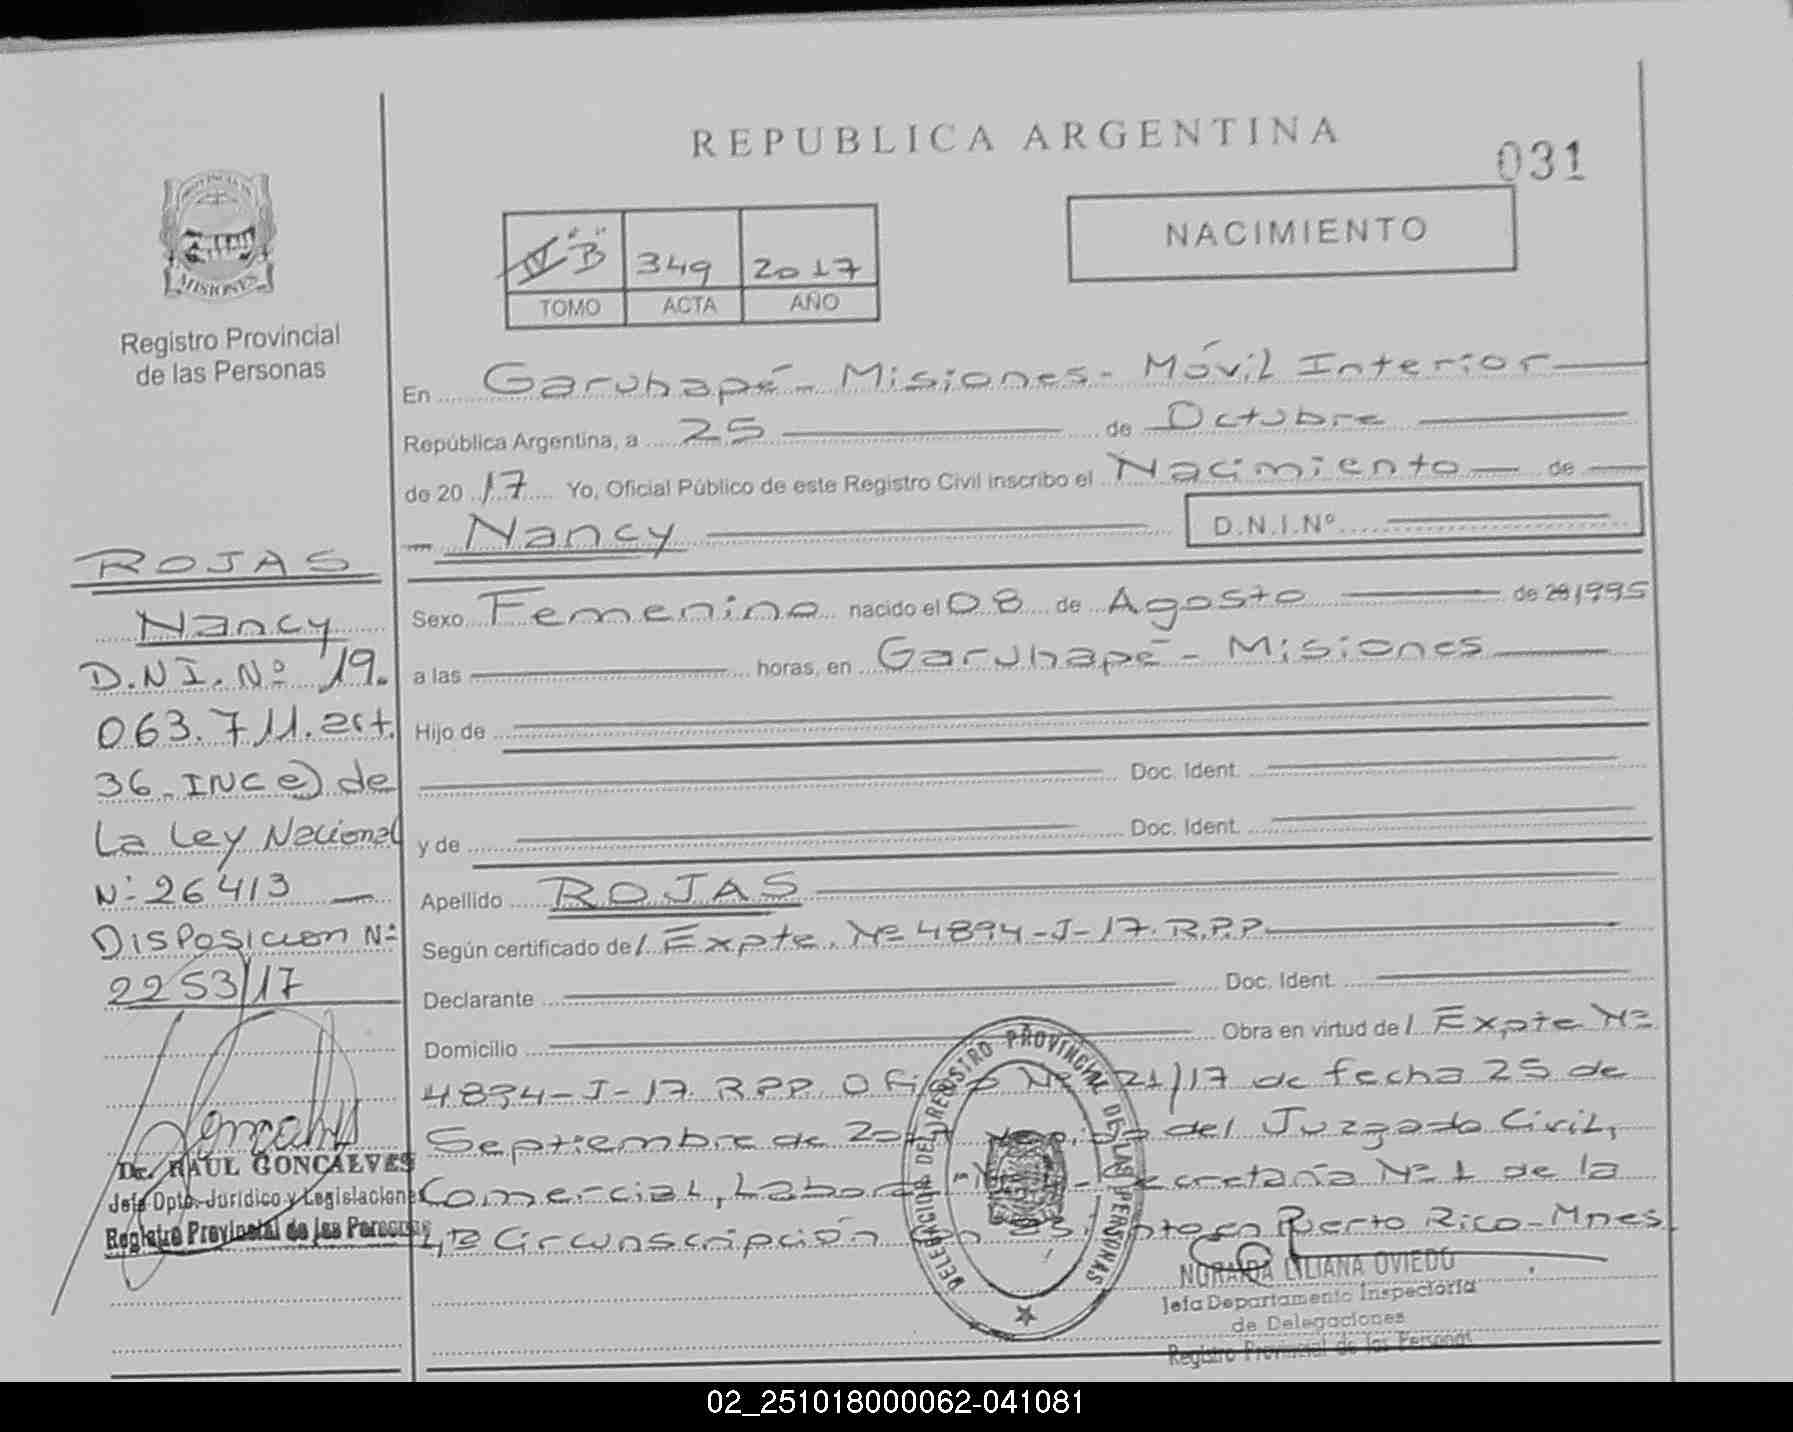 REPUBLICA ARGENTINA
031
NACIMIENTO
PROVINCIA DE
MISIONES
Registro Provincial
de las Personas
IV "B" 349 2017
TOMO ACTA AÑO
En Garuhapé - Misiones - Móvil Interior
República Argentina, a 25 de Octubre
de 2017 Yo, Oficial Público de este Registro Civil inscribo el Nacimiento de
Nancy D.N.I.Nº
Sexo Femenino nacido el 08 de Agosto de 1995
a las horas, en Garuhapé - Misiones
Hijo de
Doc. Ident.
y de Doc. Ident.
Apellido ROJAS
Según certificado de / Expte. Nº 4894-J-17. R.P.P.
Declarante Doc. Ident.
Domicilio Obra en virtud de / Expte Nº
4894-J-17. R.P.P. Oficio Nº 21/17 de fecha 25 de
Septiembre de del Juzgado Civil,
Comercial, Secretaría Nº 1 de la
Circunscripción en Puerto Rico - Mnes.
ROJAS
Nancy
D.N.I. Nº 19.
063.711. art.
36. INC e) de
La Ley Nacional
Nº 26413
DISPOSICION Nº
2253/17
Dr. RAUL GONCALVES
Jefe Dpto. Jurídico y Legislaciones
Registro Provincial de las Personas
DELEGACION DEL REGISTRO PROVINCIAL DE LAS PERSONAS
NORAIDA LILIANA OVIEDO
Jefa Departamento Inspectoria
de Delegaciones
Registro Provincial de las Personas
02_251018000062-041081